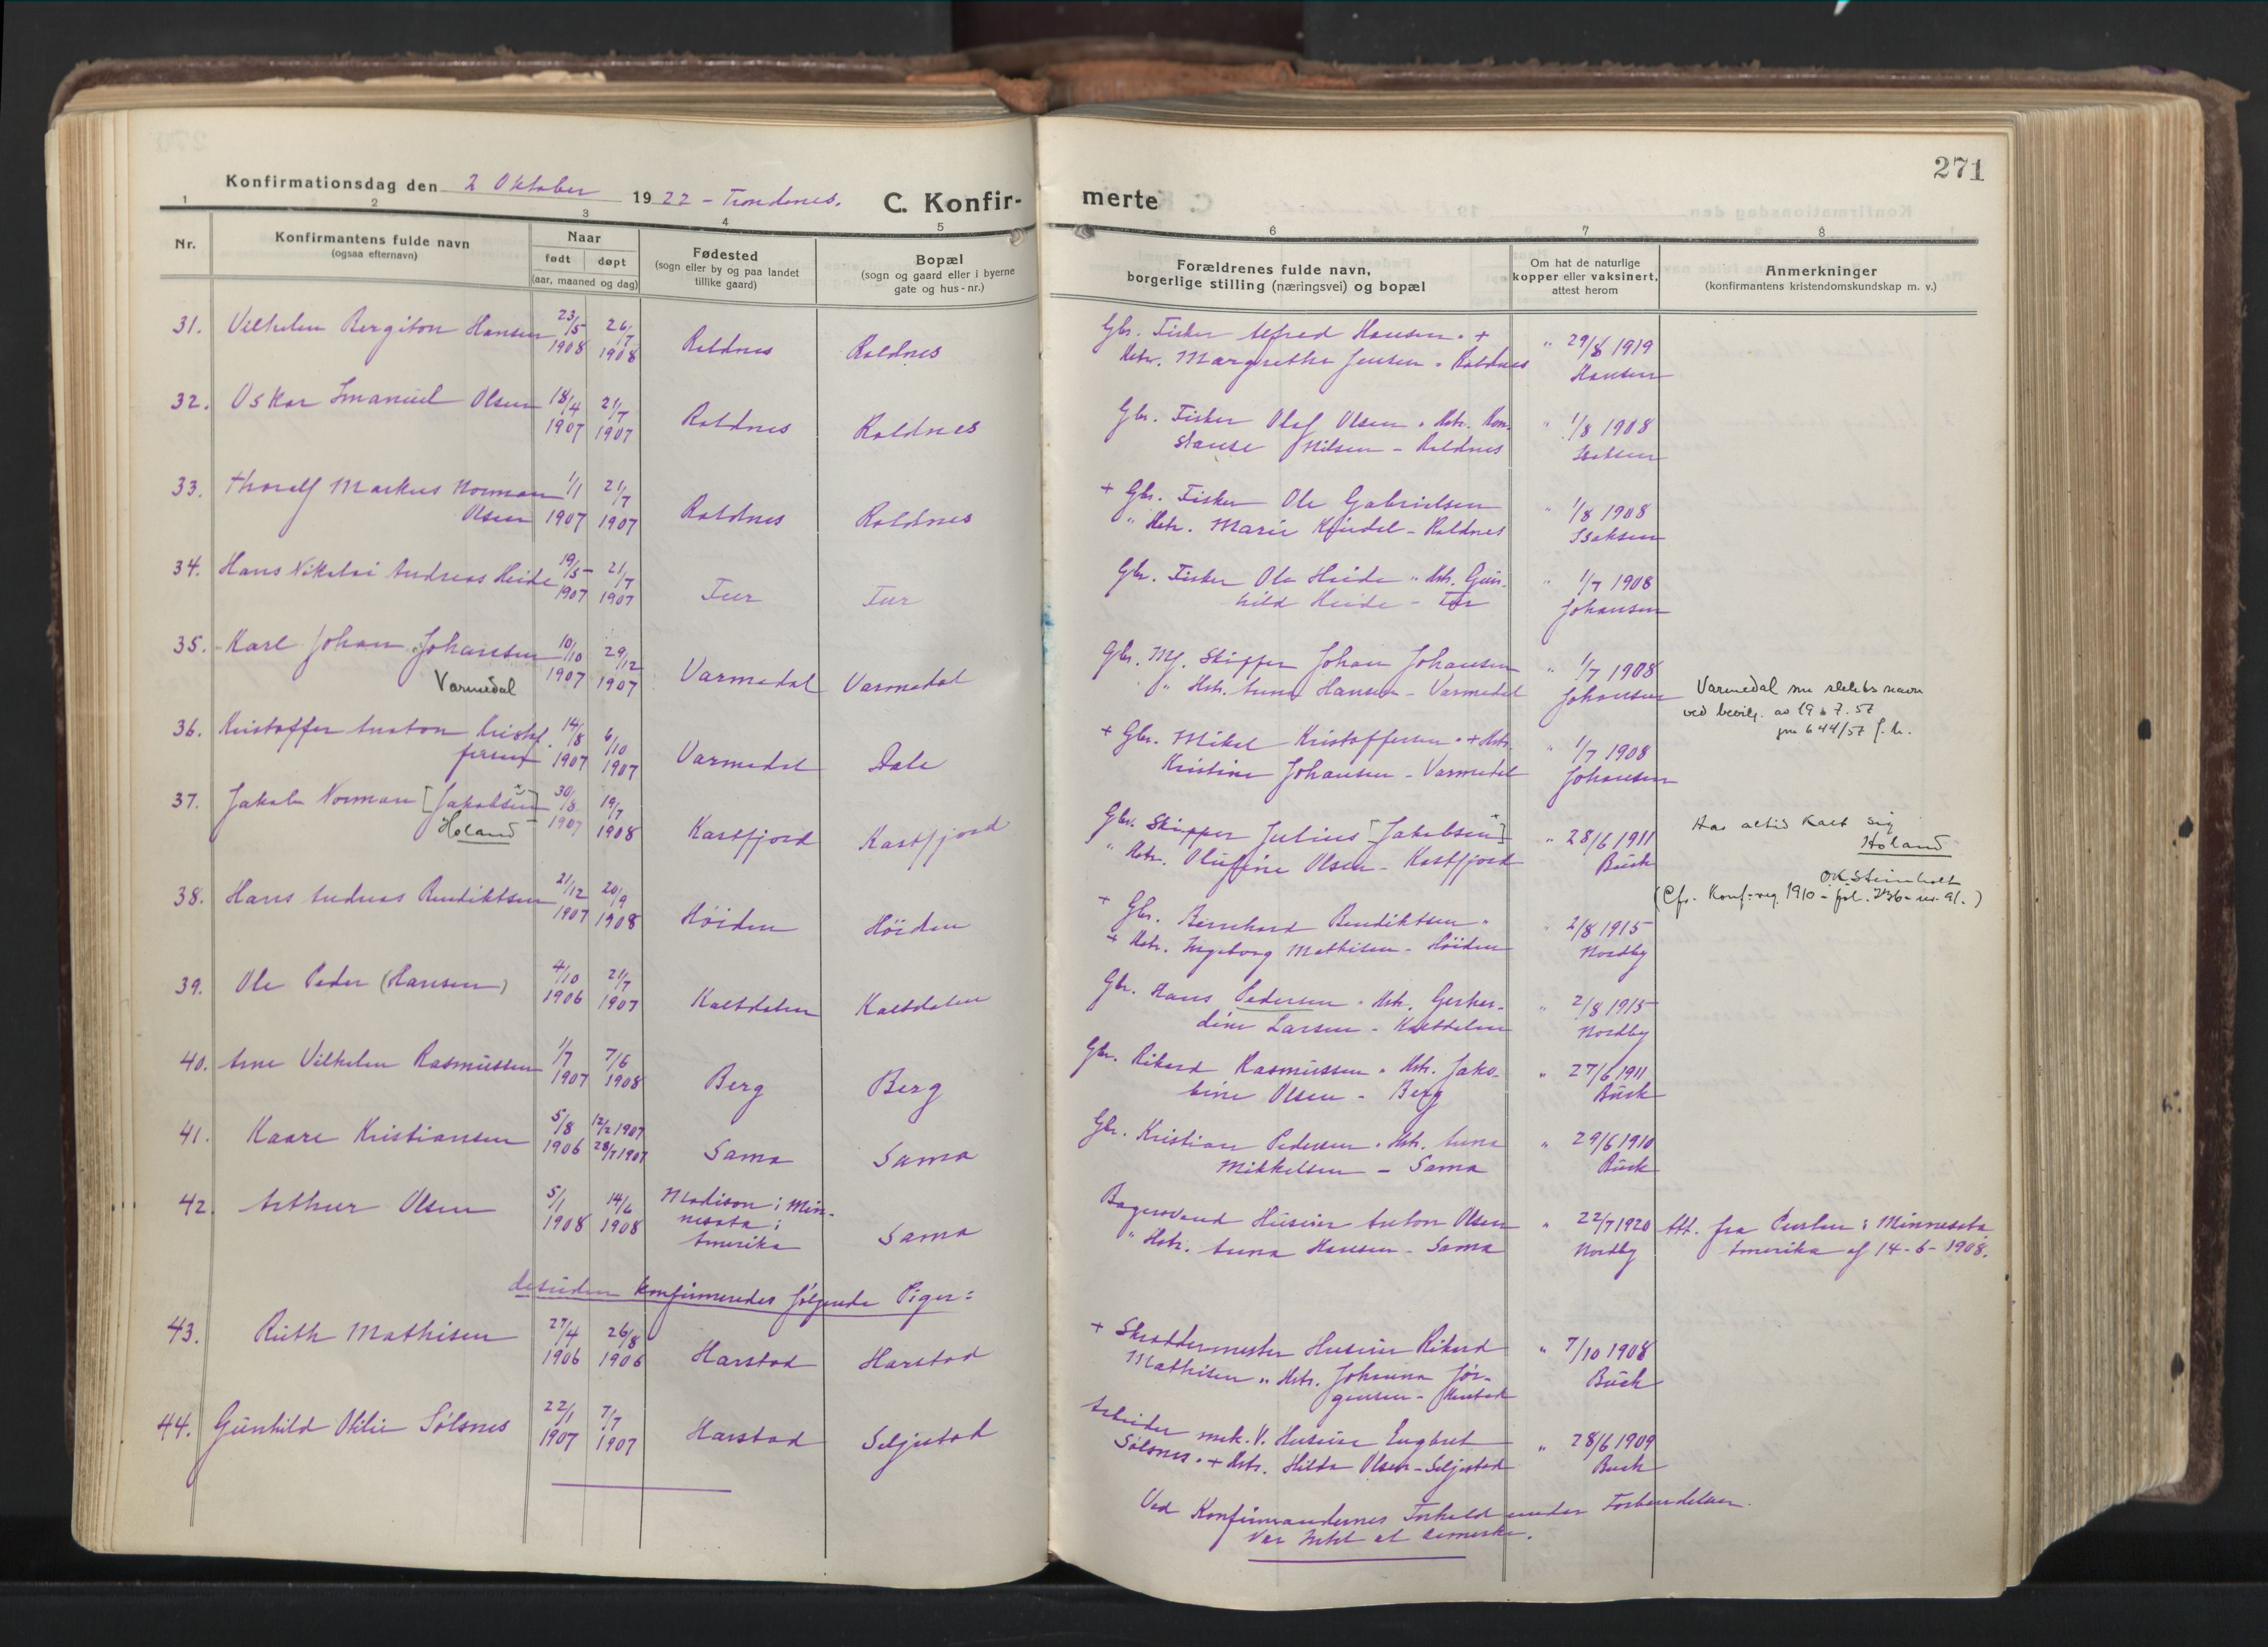 271
Konfirmationsdag den 2 Oktober 1922 - Trondenes. C. Konfir- merte
1 2 3 4 5 6 7 8
Nr.
Konfirmantens fulde navn
(ogsaa efternavn)
Naar
født døpt
(aar, maaned og dag)
Fødested
(sogn eller by og paa landet
tillike gaard)
Bopæl
(sogn og gaard eller i byerne
gate og hus-nr.)
Forældrenes fulde navn,
borgerlige stilling (næringsvei) og bopæl
Om hat de naturlige
kopper eller vaksinert,
attest herom
Anmerkninger
(konfirmantens kristendomskundskap m. v.)
31. Vilhelm Bergiton Hansen 23/5 1908 26/7 1908 Roldnes Roldnes
Gbr. Fisker Alfred Hansen. +
Hstr. Margrethe Jensen - Roldnes
" 29/8 1919
Hansen
32. Oskar Imanuel Olsen 18/4 1907 21/7 1907 Roldnes Roldnes
Gbr. Fisker Olaf Olsen " Hstr. Kon-
stanse Nilsen - Roldnes
" 1/8 1908
Isaksen
33. Thoralf Markus Norman
Olsen 1/1 1907 21/7 1907 Roldnes Roldnes
+ Gbr. Fisker Ole Gabrielsen
" Hstr. Marie - Roldnes
" 1/8 1908
Isaksen
34. Hans Nikolai Andreas Heide 19/5 1907 21/7 1907 Fur Fur
Gbr. Fisker Ole Heide " Hstr. Gun-
hild Heide - Fur
" 1/7 1908
Johansen
35. Karl Johan Johansen 10/10 1907 29/12 1907 Varmedal Varmedal
Varmedal
Gbr. Skipper Johan Johansen
" Hstr. Anna Hansen - Varmedal
" 1/7 1908
Johansen
Varmedal nu slektsnavn
ved bevilg. av 19 7. 57
jnr 644/57
36. Kristoffer Anton Kristof-
fersen 14/8 1907 6/10 1907 Varmedal Dale
+ Gbr. Mikal Kristoffersen " + Hstr.
Kristine Johansen - Varmedal
" 1/7 1908
Johansen
37. Jakob Norman [Jakobsen] 30/8 1907 19/7 1908 Kastfjord Kastfjord
Holand
Gbr. Skipper Julius [Jakobsen]
" Hstr. Olufine Olsen - Kastfjord
" 28/6 1911
Buck
Har altid kalt sig
Holand
OK Steinholt
(Cfr. Konf-reg. 1910 - fol. 236 - nr. 91.)
38. Hans Andreas Bendiktsen 21/12 1907 20/9 1908 Høiden Høiden
+ Gbr. Bernhard Bendiktsen "
+ Hstr. Ingeborg Mathisen - Høiden
" 2/8 1915
Nordby
39. Ole Peder (Hansen) 4/10 1906 21/7 1907 Kaltdalen Kaltdalen
Gbr. Hans Pedersen " Hstr. Gerhar-
dine Larsen - Kaltdalen
" 2/8 1915
Nordby
40. Arne Vilhelm Rasmussen 1/7 1907 7/6 1908 Berg Berg
Gbr. Rikard Rasmussen " Hstr. Jako-
bine Olsen - Berg
" 27/6 1911
Buck
41. Kaare Kristiansen 5/8 1906 12/2 1907 28/7 1907 Sama Sama
Gbr. Kristian Pedersen " Hstr. Anna
Mikkelsen - Sama
" 29/6 1910
Buck
42. Arthur Olsen 5/1 1908 14/6 1908 Madison i Min-
nesota i
Amerika
Sama
Huseier Anton Olsen
" Hstr. Anna Hansen - Sama
" 22/7 1920
Nordby
Att. fra i Minnesota
Amerika af 14-6-1908.
desuden konfirmeredes følgende Piger:
43. Ruth Mathisen 27/4 1906 26/8 1906 Harstad Harstad
+ Skræddermester Husier Rikard
Mathisen " Hstr. Johanna Jør-
gensen - Harstad
" 7/10 1908
Buck
44. Gunhild Otilie Sølsnes 22/1 1907 7/7 1907 Harstad Seljestad
Arbeider mek. V. Huseier Engbret
Sølsnes. + Hstr. Hilda Olsen - Seljestad
" 28/6 1909
Buck
Ved Konfirmandernes Forhold under Forberedelsen
var Intet at bemerke.